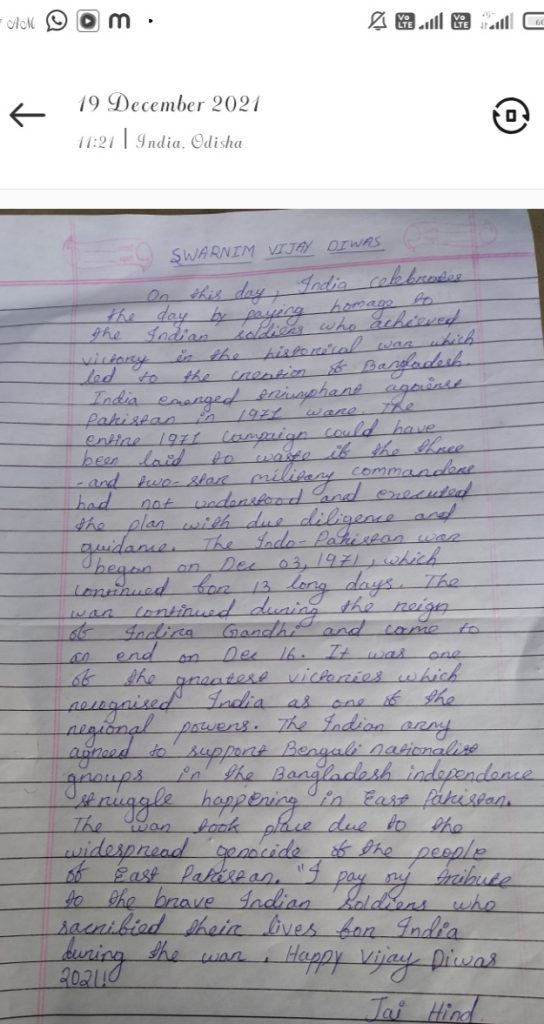 AM
m
Vo
LTE
Vo
LTE
19 December 2021
11:21 | India, Odisha
SWARNIM VIJAY DIWAS
On this day, India celebrates
the day by paying homage to
the Indian soldiers who achieved
victory in the historical war which
led to the creation of Bangladesh.
India emerged triumphant against
Pakistan in 1971 ware. The
entire 1971 campaign could have
been laid to waste if the three
-and two-star military commanders
had not understood and executed
the plan with due diligence and
guidance. The Indo-Pakistan war
began on Dec 03, 1971, which
continued for 13 long days. The
war continued during the reign
of Indira Gandhi and came to
an end on Dec 16. It was one
of the greatest victories which
recognised India as one of the
regional powers. The Indian army
agreed to support Bengali nationalist
groups in the Bangladesh independence
struggle happening in East Pakistan.
The war took place due to the
widespread genocide of the people
of East Pakistan. "I pay my tribute
to the brave Indian soldiers who
sacrificed their lives for India
during the war. Happy Vijay Diwas
2021!
Jai Hind.